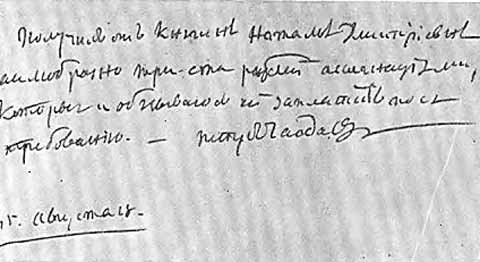 Получилъ отъ Княжны Натальи Дмитріевны
заимообразно три-ста рублей ассигнаціями,
которые и обязываюсь ей заплатить по ея
требованію. — Петръ Чаадаевъ
августа